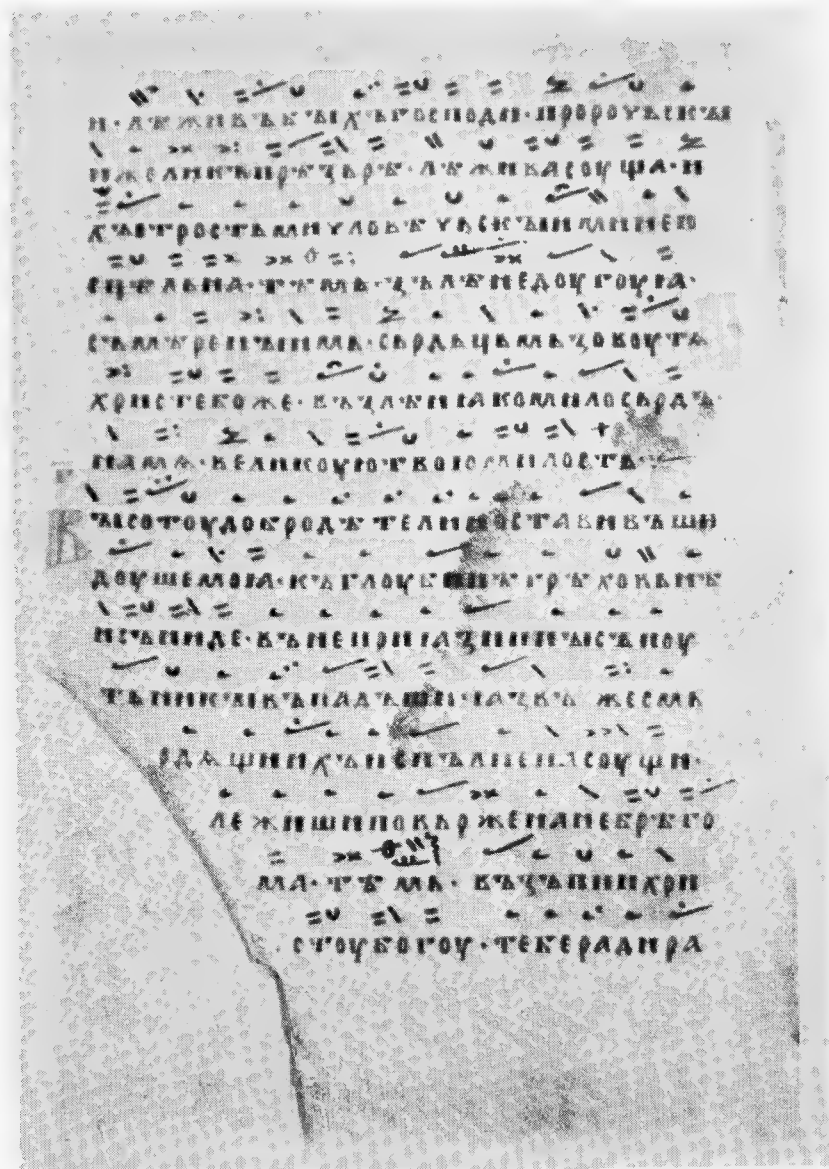 и·лъживъѣꙑхъгосподи·пророчьскꙑ
ижеликъирѣхърѣ·лъживасоуща·и
хътростьмичловѣчьскꙑиминеи
ецѣльна·тѣмь·ꙁълѣнедоугоуѭ·
съмѣренꙑимь·сьрдьцьмьꙁовоутѧ
христебоже·въꙁлѣниꙗкомилосьрдъ·
намъ·великоуютвоюмилость·
Въісотоудобродѣтелииоставивъши
доушемоꙗ·къглоубинѣгрѣховьнѣ
исъниде·вънеприꙗꙁнинꙑсъноу
тьникꙑвъпадъши·ꙗꙁвꙑжесмь
рдѧщиихънеисцѣлиенасоущи·
лежишипокьрженанебрѣго
ма·тѣмь·въꙁъпиихри
стоубогоу·теберадира